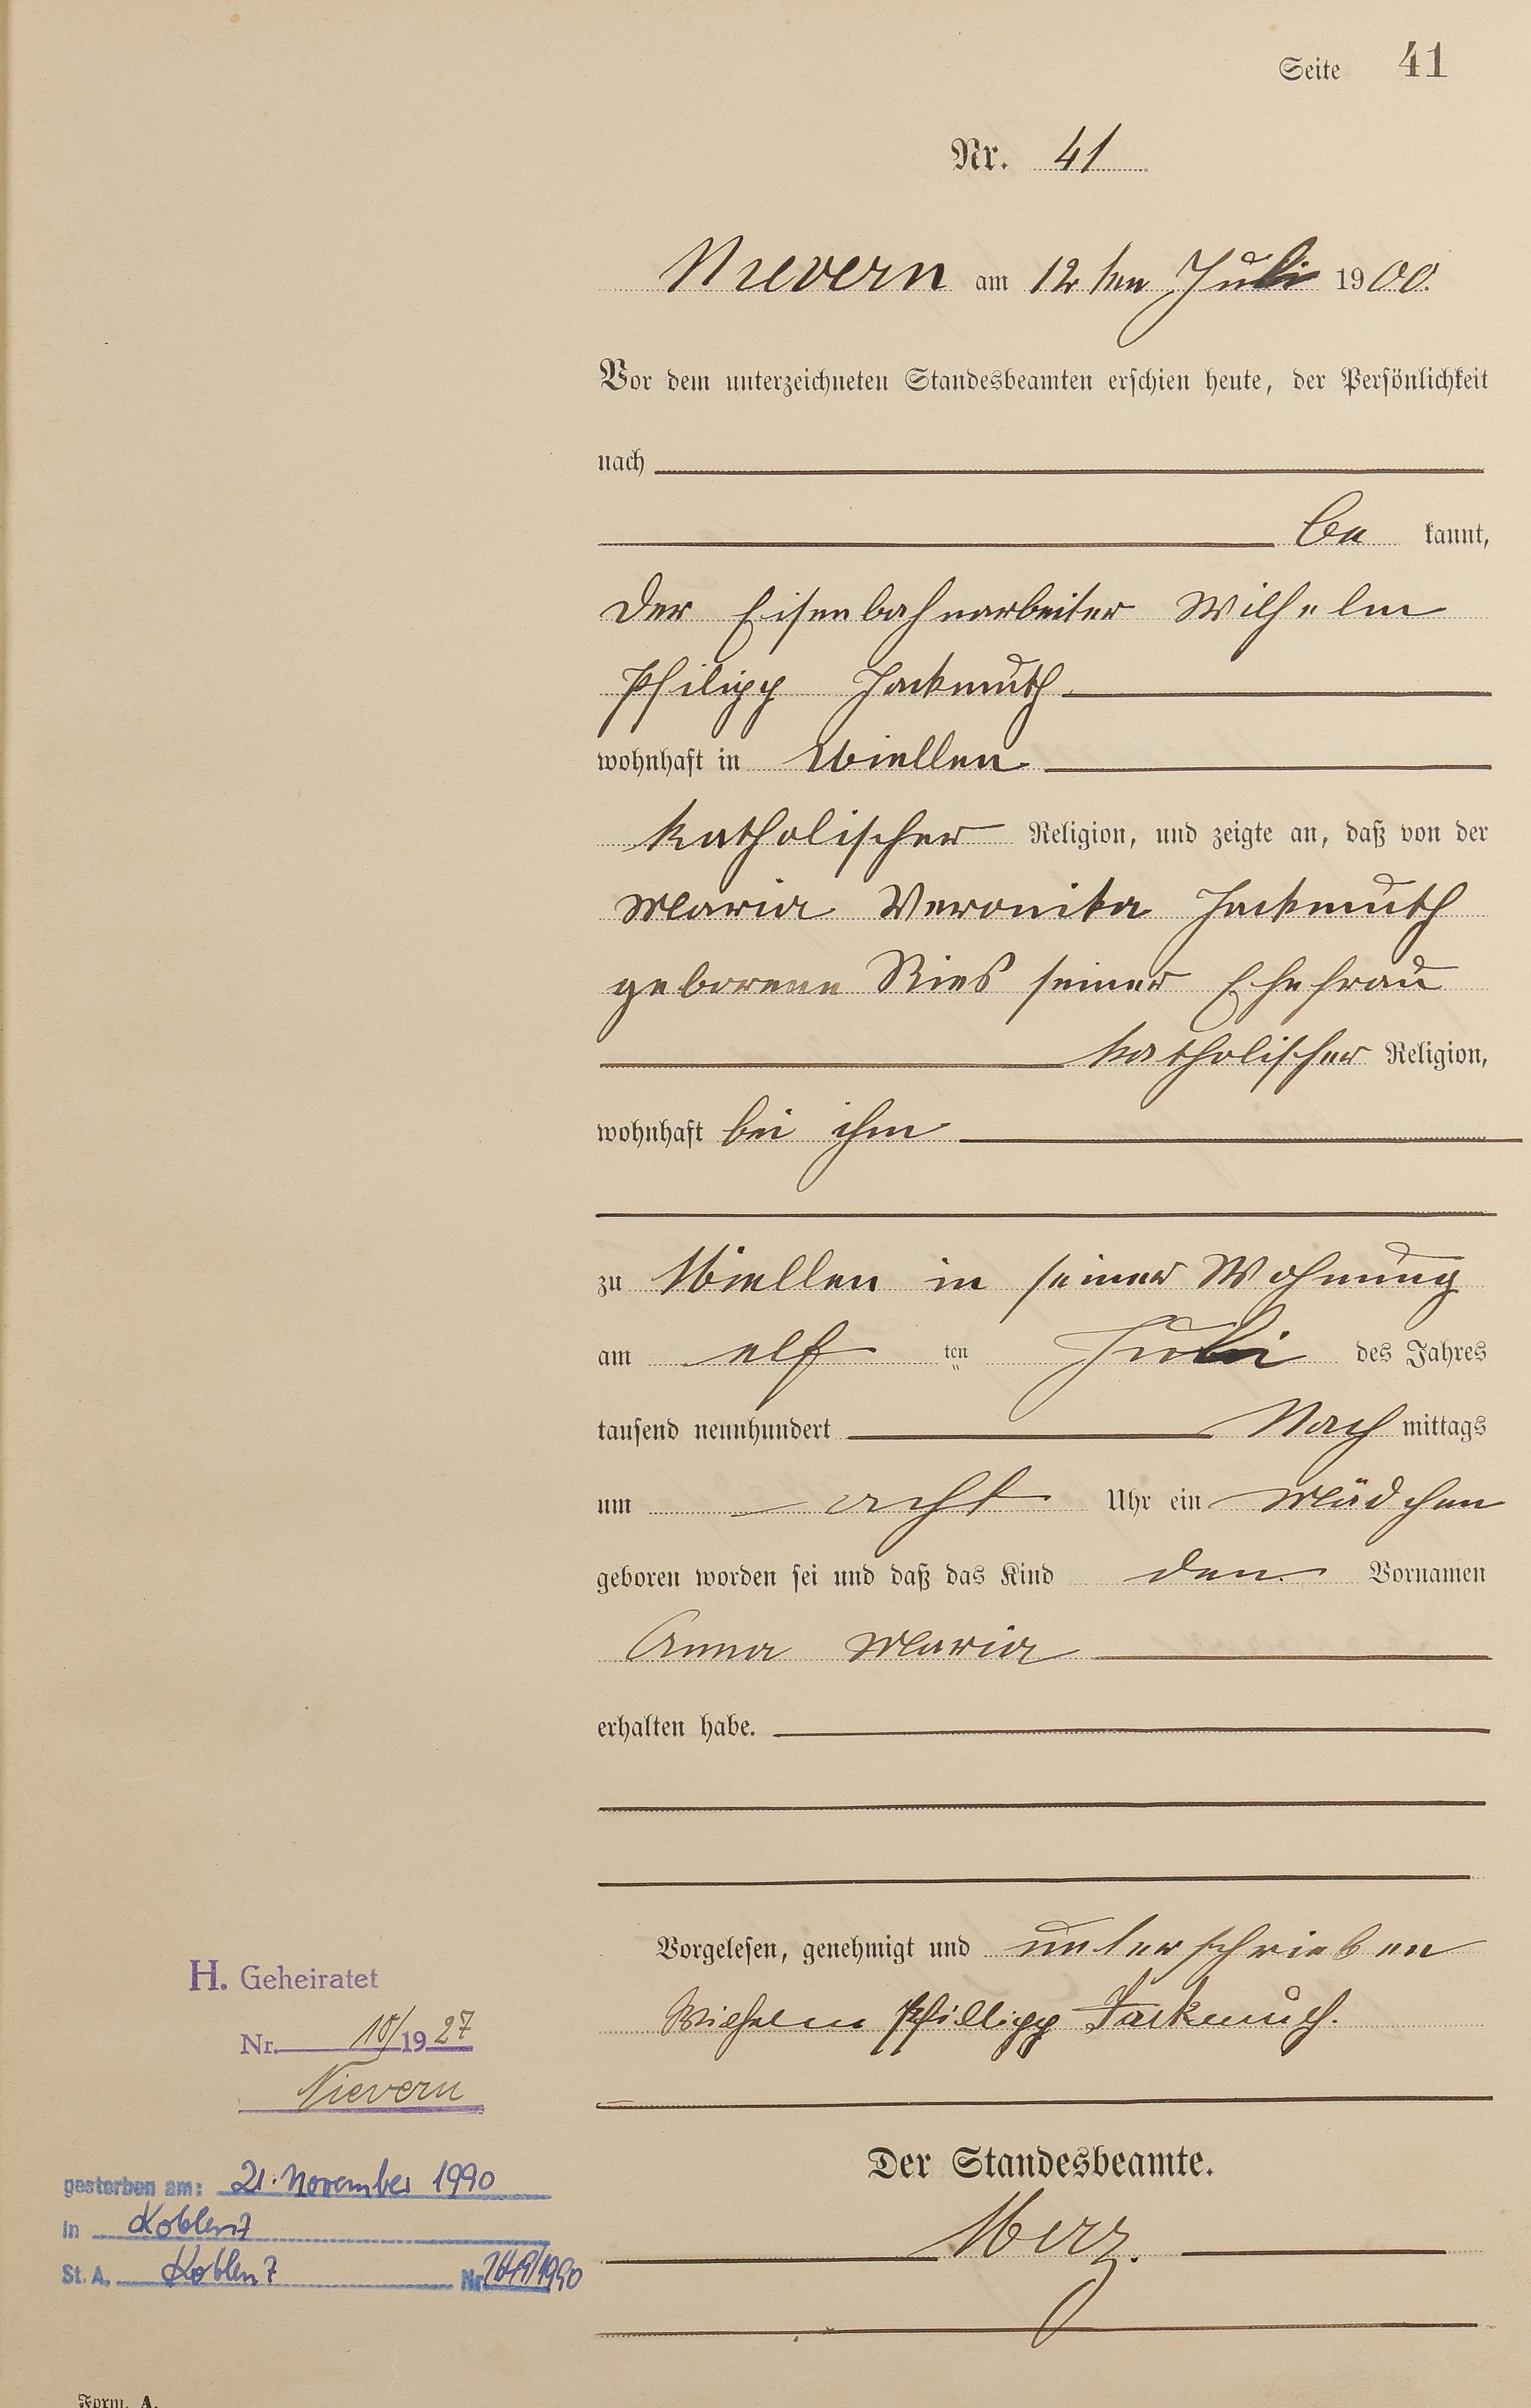 Seite 41
Nr. 41
Nievern am 12ten Juli 1900.
Vor dem unterzeichneten Standesbeamten erschien heute, der Persönlichkeit
nach
be kannt,
der Eisenbahnarbeiter Wilhelm
Philipp Jackmuth
wohnhaft in Miellen
katholischer Religion, und zeigte an, daß von der
Maria Veronika Jackmuth
geborene Ries seiner Ehefrau
katholischer Religion,
wohnhaft bei ihm
zu Miellen in seiner Wohnung
am elf ten Juli des Jahres
tausend neunhundert Nach mittags
um acht Uhr ein Mädchen
geboren worden sei und daß das Kind den Vornamen
Anna Maria
erhalten habe.
Vorgelesen, genehmigt und unterschrieben
Wilhelm Phillipp Jackmuth.
Der Standesbeamte.
Merz.
H. Geheiratet
Nr. 10/1927
Nievern
gestorben am: 21. November 1990
in Koblenz
St. A. Koblenz Nr. /1990
Form. A.